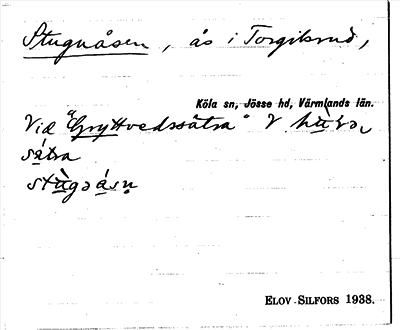 Stugnåsen, ås i Torgilsrud,
Köla sn, Jösse hd, Värmlands län.
Vid "Gryttvedssätra"
sàtra
stùgəásṇ
ELOV SILFORS 1938.